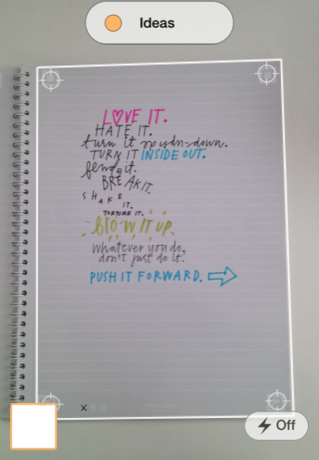 Ideas
LOVE IT.
HATE IT.
turn it upside-down.
TURN IT INSIDE OUT.
bend it.
BREAK IT.
SHAKE IT.
TORTURE IT.
BLOW IT UP.
whatever you do,
don't just do it.
PUSH IT FORWARD.
Off